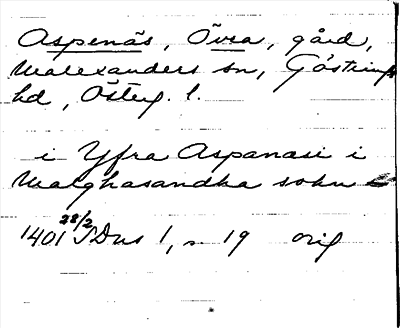 Aspenäs, Övra, gård,
Malexanders sn, Göstrings
hd, Österg. l.
i Yfra Aspanæsi i
Malghasandha sokn
1401 28/2 SDns 1, n 19 orig